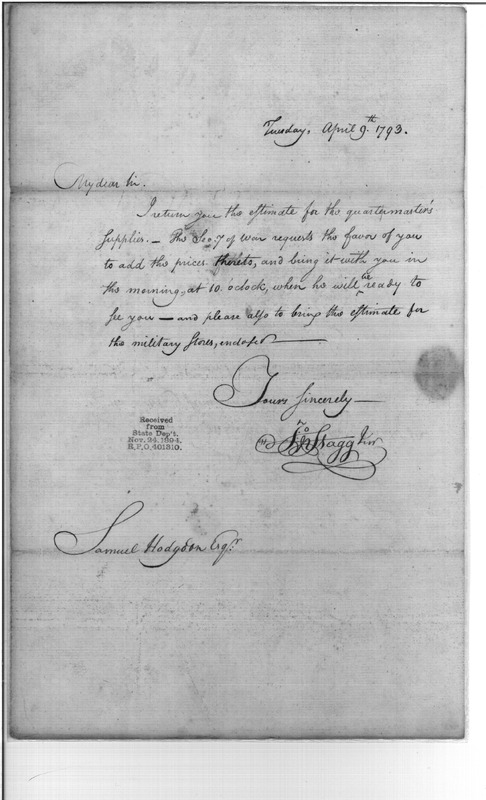 Tuesday, April 9th 1793.
My dear Sir.
I return you the estimate for the quartermaster's
supplies. — The Secy of war requests the favor of you
to add the prices thereto, and bring it with you in
the morning, at 10. oclock, when he will be ready to
see you — and please also to bring the estimate for
the military stores, endosed —
Yours sincerely —
Jno Stagg Junr
Received
from
State Dep't.
Nov. 24, 1894.
R.P.O. 401310.
Samuel Hodgdon Esqr.